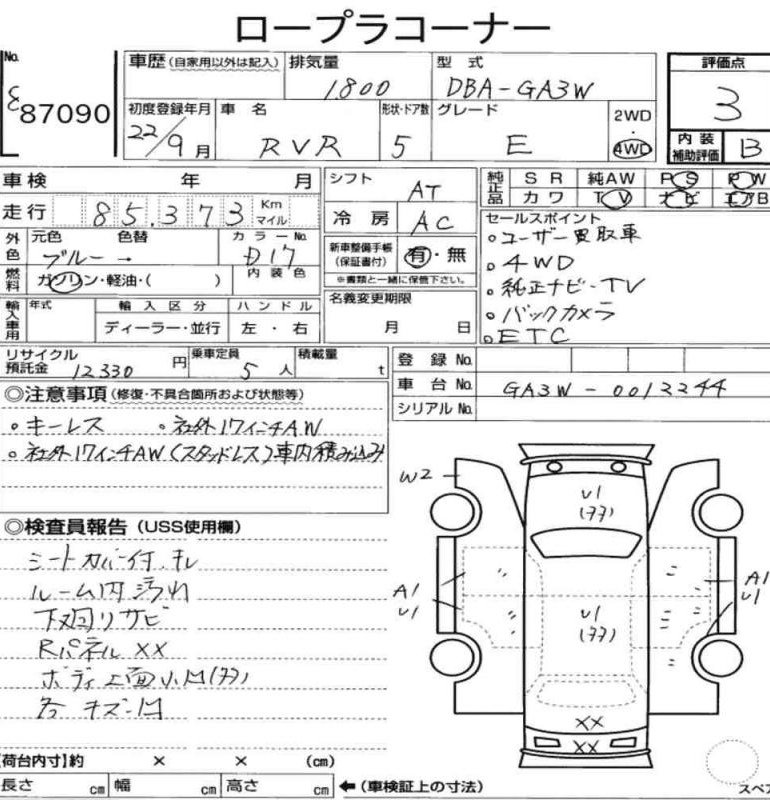 ロープラコーナー
No.
87090
車歴(自家用以外は記入)
排気量
1800
型式
DBA-GA3W
評価点
3
初度登録年月
22/9月
車名
RVR
形状・ドア数
5
グレード
E
2WD
・
4WD
内装
補助評価
B
車検 年 月
シフト
AT
純正品
SR 純AW PS PW
カワ TV ナビ エアB
走行 85,373 Km マイル
冷房
AC
セールスポイント
。ユーザー買取車
。4WD
。純正ナビ・TV
。バックカメラ
。ETC
外色
元色 色替
ブルー →
カラーNo.
D17
内装色
新車整備手帳
(保証書付)
有・無
※書類と一緒に保管下さい。
燃料
ガソリン・軽油・( )
名義変更期限
月 日
輸入車用
年式
輸入区分
ディーラー・並行
ハンドル
左・右
リサイクル
預託金 12330 円
乗車定員 5 人
積載量 t
登録No.
車台No.
GA3W-0012244
シリアルNo.
◎注意事項(修復・不具合箇所および状態等)
。キーレス 。社外17インチAW
。社外17インチAW(スタッドレス)車内積み込み
◎検査員報告(USS使用欄)
シートカバー付.キレ
ルーム内汚れ
下廻りサビ
Rパネル XX
ボディ上面小凹(多)
各キズ・凹
W2
U1
(多)
A1
U1
U1
(多)
A1
U1
XX
XX
【荷台内寸】約 × × (cm)
長さ cm 幅 cm 高さ cm
←(車検証上の寸法)
スペア